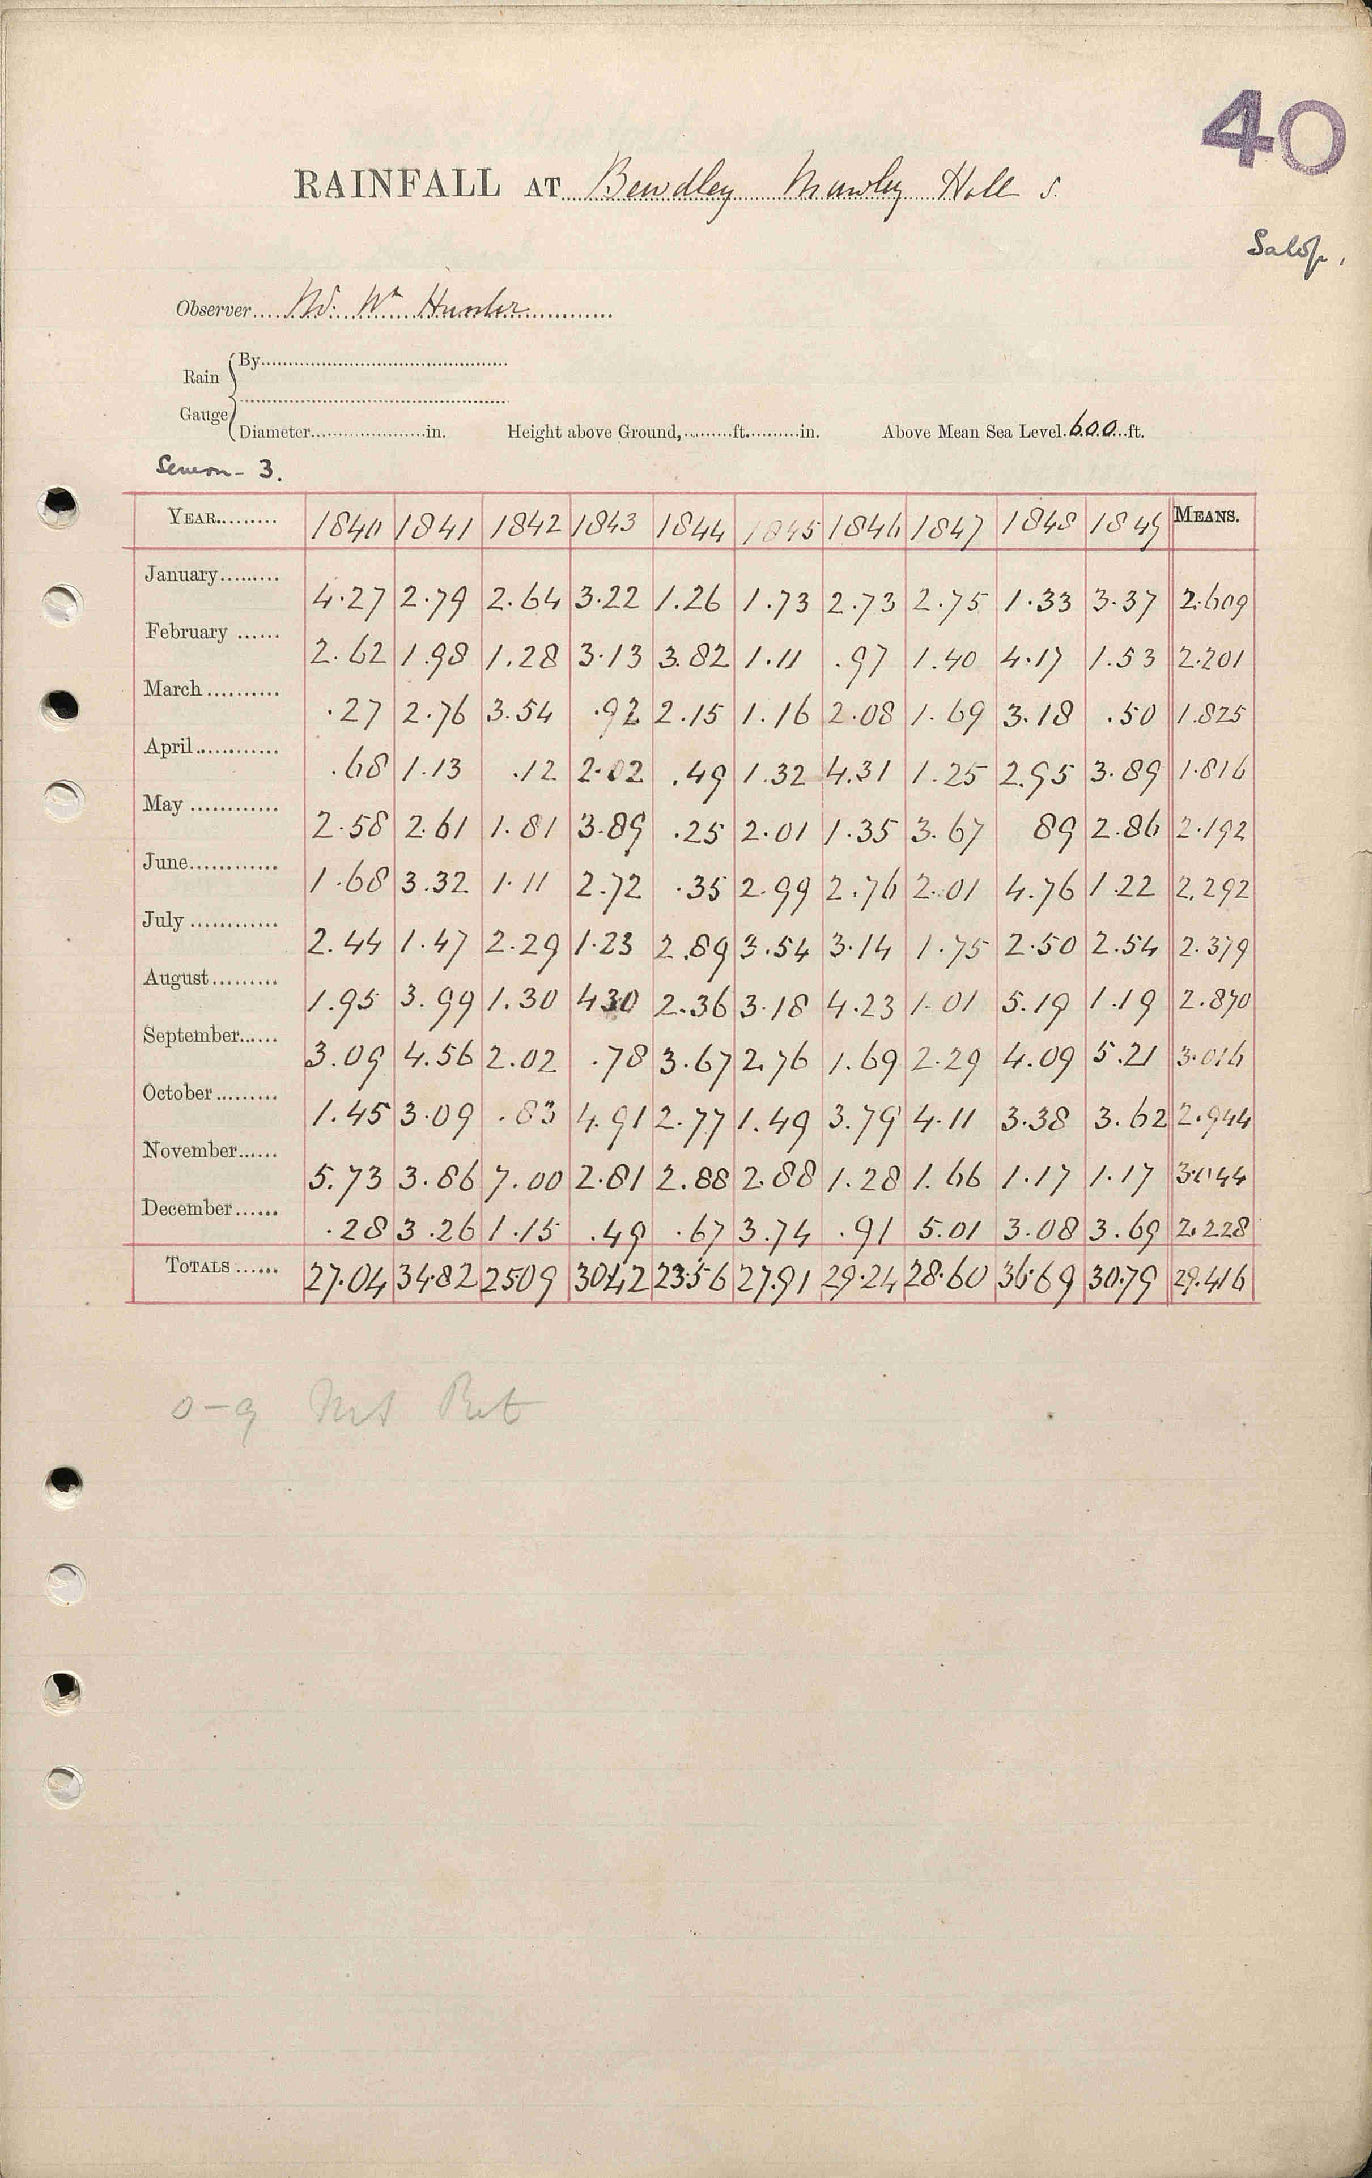 40
RAINFALL AT Bewdley Mawley Hall S.
Salop.
Observer.... Wm Hunter
Rain Gauge { By
Diameter......in. Height above Ground,......ft......in. Above Mean Sea Level. 600 ft.
Severn - 3.
YEAR......... 1840 1841 1842 1843 1844 1845 1846 1847 1848 1849 MEANS.
January......... 4.27 2.79 2.64 3.22 1.26 1.73 2.73 2.75 1.33 3.37 2.609
February ...... 2.62 1.98 1.28 3.13 3.82 1.11 .97 1.40 4.17 1.53 2.201
March.......... .27 2.76 3.54 .92 2.15 1.16 2.08 1.69 3.18 .50 1.825
April............ .68 1.13 .12 2.02 .49 1.32 4.31 1.25 2.95 3.89 1.816
May ............ 2.58 2.61 1.81 3.89 .25 2.01 1.35 3.67 89 2.86 2.192
June............ 1.68 3.32 1.11 2.72 .35 2.99 2.76 2.01 4.76 1.22 2.292
July ............ 2.44 1.47 2.29 1.23 2.89 3.54 3.14 1.75 2.50 2.54 2.379
August......... 1.95 3.99 1.30 430 2.36 3.18 4.23 1.01 5.19 1.19 2.870
September...... 3.09 4.56 2.02 .78 3.67 2.76 1.69 2.29 4.09 5.21 3.016
October......... 1.45 3.09 .83 4.91 2.77 1.49 3.79 4.11 3.38 3.62 2.944
November...... 5.73 3.86 7.00 2.81 2.88 2.88 1.28 1.66 1.17 1.17 3.044
December...... .28 3.26 1.15 .49 .67 3.74 .91 5.01 3.08 3.69 2.228
TOTALS ...... 27.04 34.82 2509 30.42 23.56 27.91 29.24 28.60 36.69 30.79 29.416
0-9